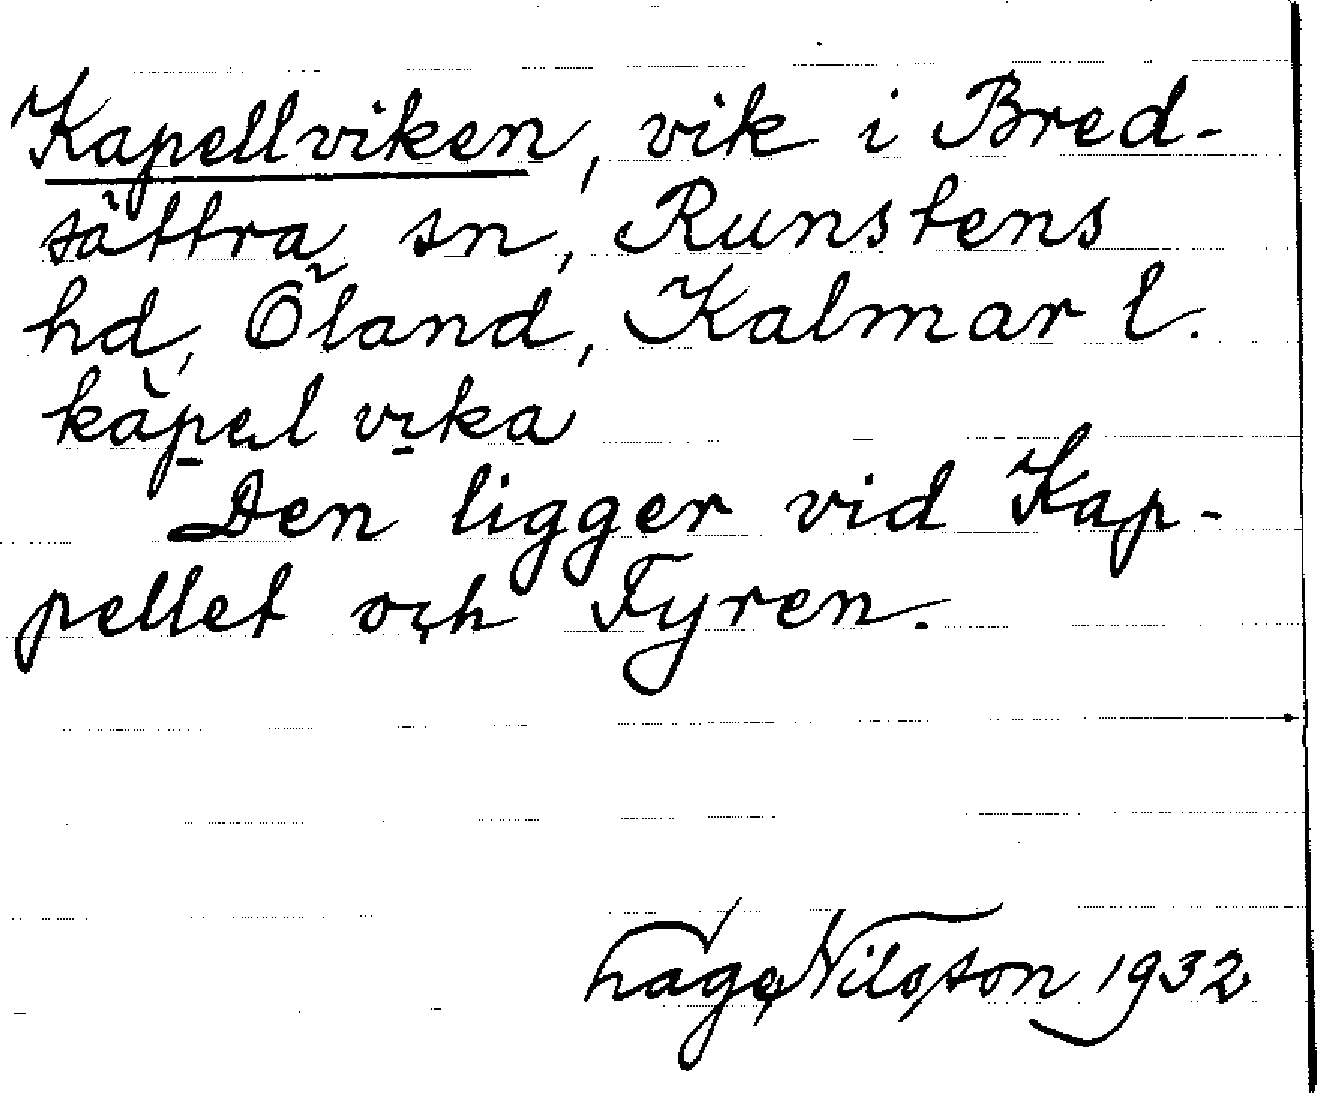 Kapellviken, vik i Bred-
sättra sn, Runstens
hd, Öland, Kalmar l.
kàpel vika
Den ligger vid Kap-
pellet och Fyren.
Hage Nilsson 1932